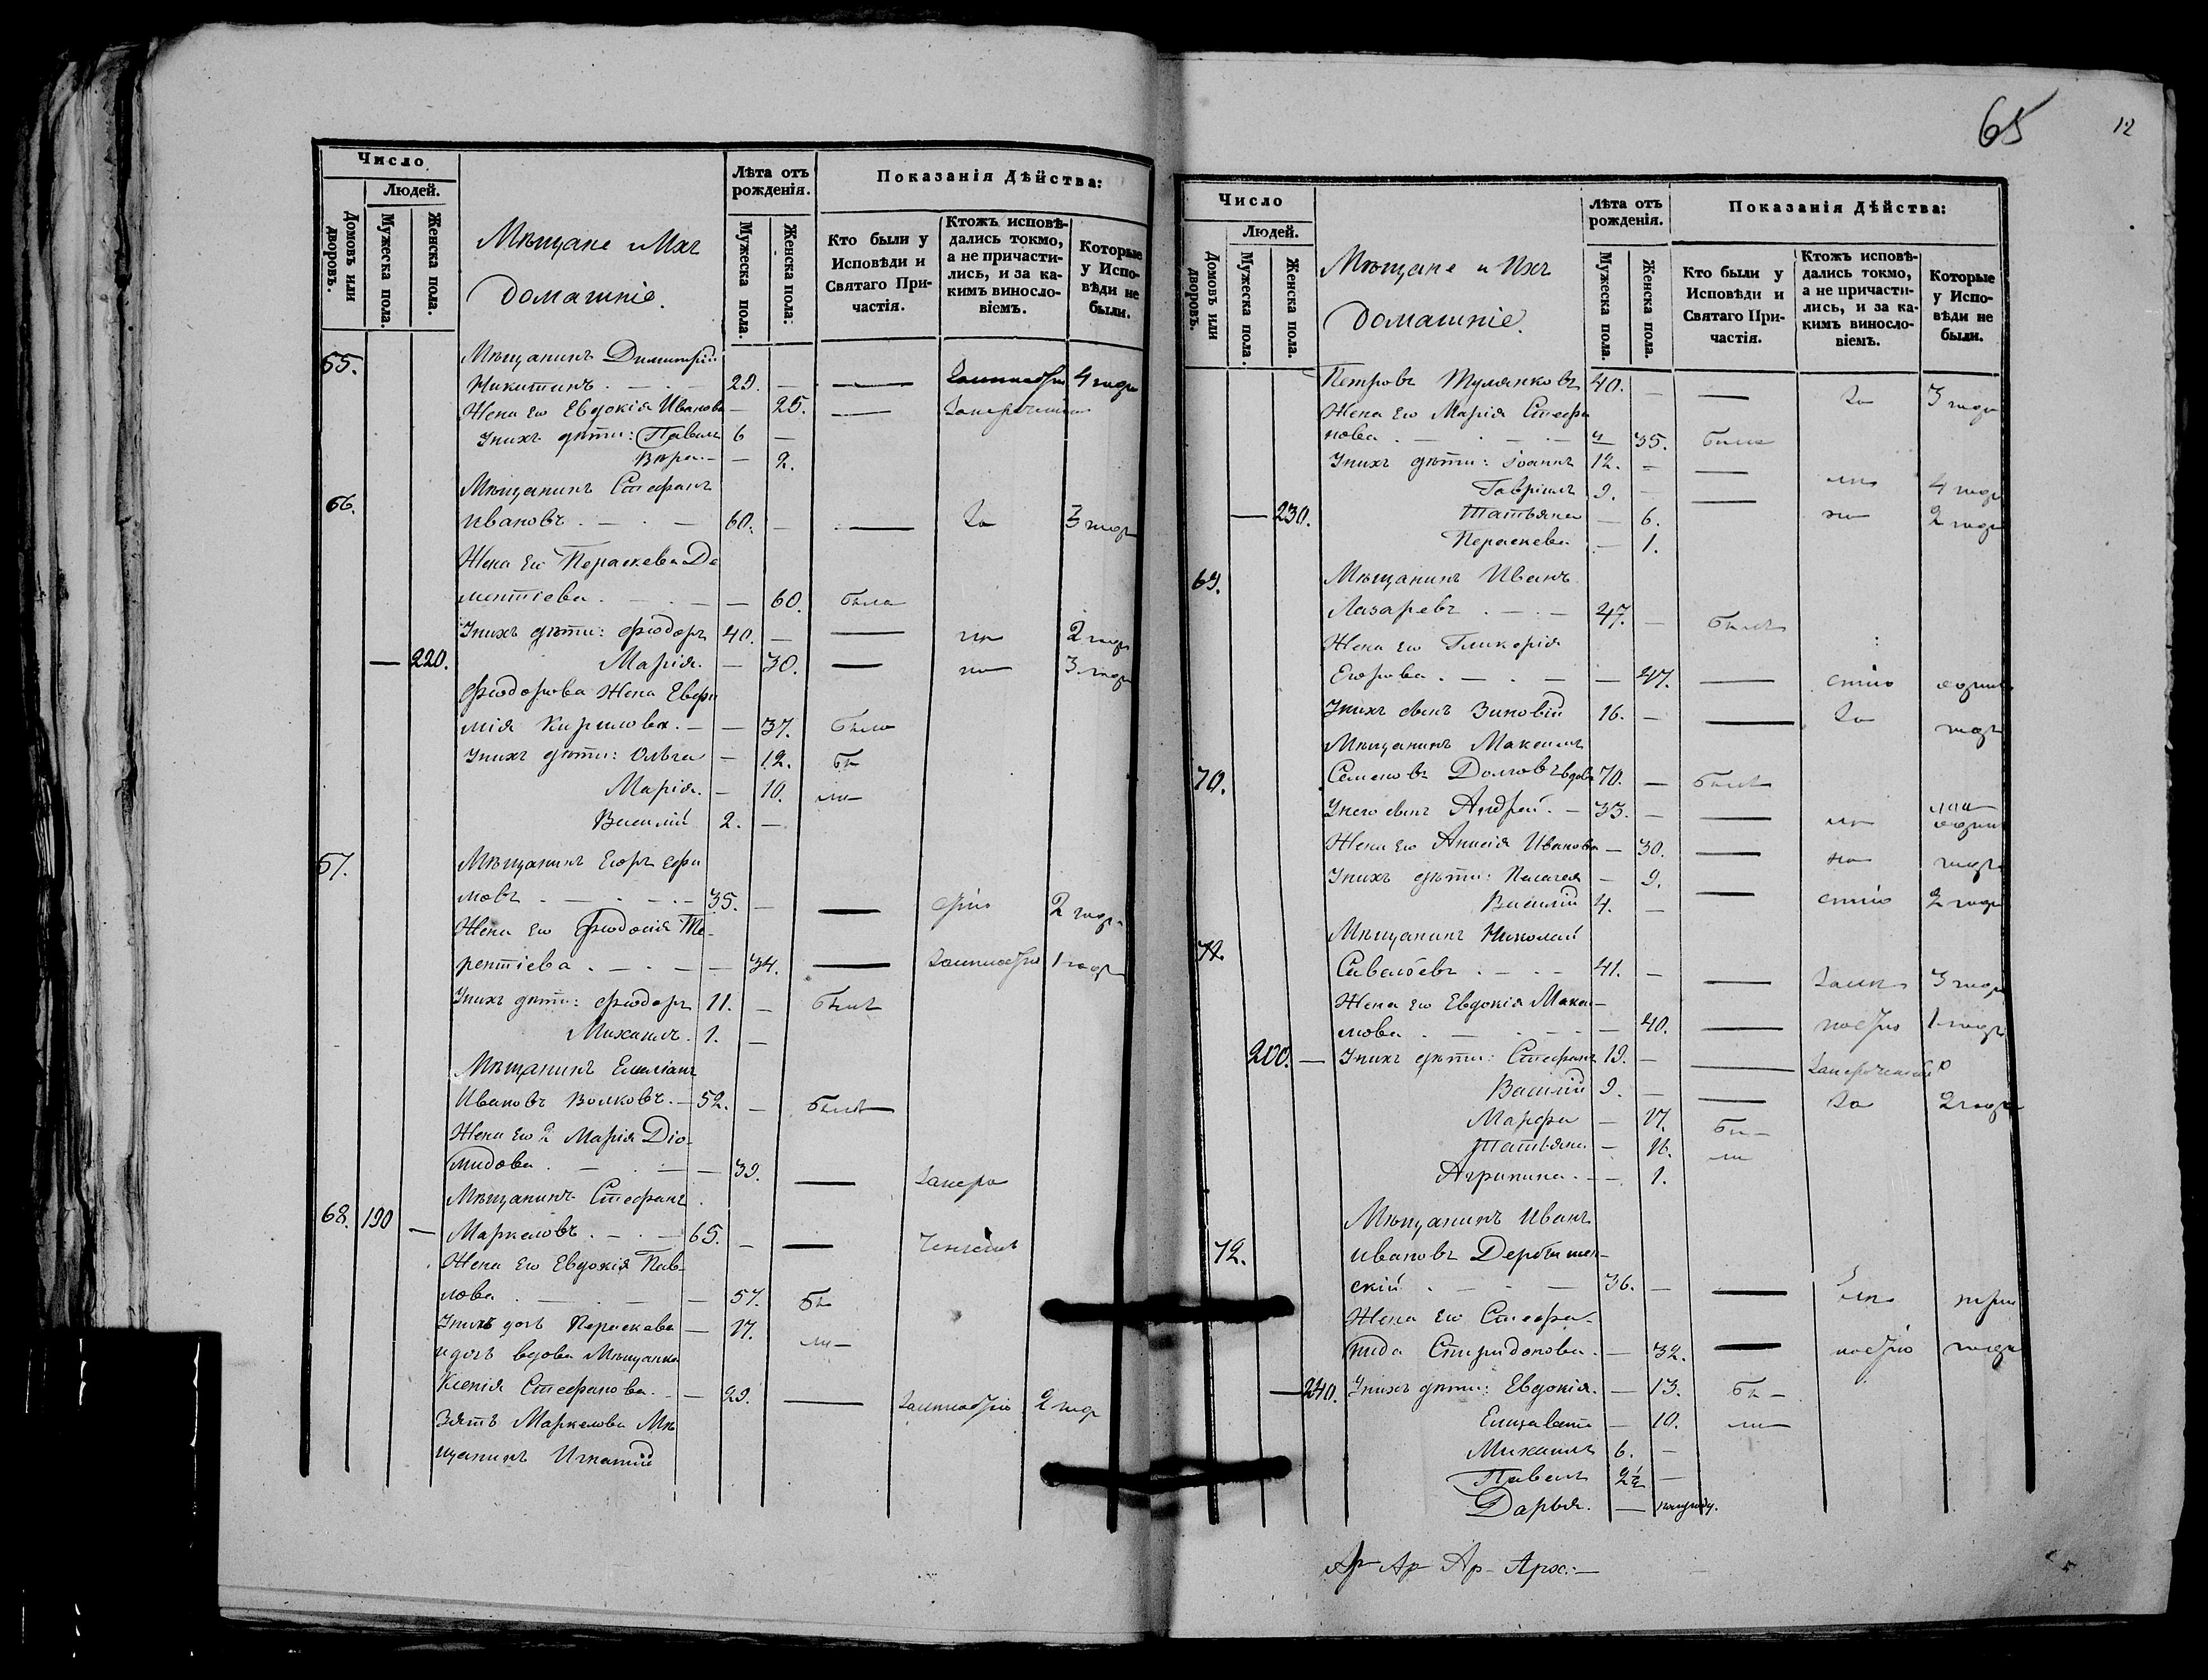 Число
Людей.
Домовъ или дворовъ.
Мужеска пола.
Женска пола.
Мѣщане и Ихъ
Домашніе.
Лѣта отъ рожденія.
Мужеска пола.
Женска пола:
Показанія Дѣйства:
Кто были у Исповѣди и Святаго Причастія.
Ктожъ исповѣдались токмо, а не причастились, и за какимъ винословіемъ.
Которые у Исповѣди не были.
65. Мѣщанинъ Димитрій
Никитинъ. 29. — — 4 года
Жена его Евдокія Иванова — 25. —
У нихъ дѣти: Павелъ 6 —
Вѣра — 2.
66. Мѣщанинъ Стефанъ
Ивановъ. 60. — — За 3 года
Жена его Параскева Де
ментіева. — 60. была
У нихъ дѣти: Ѳеодоръ 40. — — 2 года
— 220. Марія. — 30. — 3 года
Ѳеодорова Жена Евфи
мія Кирилова. — 37. была
У нихъ дѣти: Ольга — 12. бы
Марія. — 10. ли
Василій 2. —
67. Мѣщанинъ Егоръ Ефи
мовъ 35. — — 2 года
Жена его Ѳеодосія Те-
рентіева. — 34. — 1 годъ
У нихъ дѣти: Ѳеодоръ 11. — былъ
Михаилъ. 1. —
Мѣщанинъ Емиліанъ
Ивановъ Волковъ. 52. — былъ
Жена его 2 Марія Діо-
мидова. — 39. —
Мѣщанинъ Стефанъ
68. 190 — Маркеловъ. 65. — —
Жена его Евдокія Пав-
лова — 57. бы
У нихъ дочь Параскева — 17. ли
и дочь вдова Мѣщанка
Ксенія Стефанова. — 29. — 2 года
Зять Маркелова Мѣ
щанинъ Игнатій
65
12
Число
Людей.
Домовъ или дворовъ.
Мужеска пола.
Женска пола.
Мѣщане и Ихъ
Домашніе.
Лѣта отъ рожденія.
Мужеска пола.
Женска пола.
Показанія Дѣйства:
Кто были у Исповѣди и Святаго Причастія.
Ктожъ исповѣдались токмо, а не причастились, и за какимъ винословіемъ.
Которые у Исповѣди не были.
Петровъ 40. — — За 3 года
Жена его Марія Стефа
нова. 35. была
У нихъ дѣти: Іоаннъ 12. — — 4 года
Гавріилъ 9. — — 2 года
— 230. Татьяна — 6.
Параскева — 1.
69. Мѣщанинъ Иванъ
Лазаревъ 47. — былъ
Жена его Гликерія
Егорова. — 47. — одинъ
У нихъ сынъ Зиновій 16. — — За годъ
Мѣщанинъ Максимъ
70. Семеновъ Долговъ вдовъ 70. — былъ
У него сынъ Андрей. 33. — — одинъ
Жена его Анисія Иванова — 30. — годъ
У нихъ дѣти: Пелагея — 9.
Василій 4. — — 2 года
Мѣщанинъ Николай
Савельевъ 41. — — 3 года
Жена его Евдокія Макси-
мова. — 40. — 1 годъ
200. — У нихъ дѣти: Стефанъ 19. — —
Василій 9. — — За 2 года
Марфа — 17. бы-
Татьяна — 16. ли
Агрипина. — 1.
Мѣщанинъ Иванъ
72. Ивановъ
скій 36. — — три
Жена его Стефа-
нида Спиридонова. — 32. — года
— 240. У нихъ дѣти: Евдокія. — 13. бы-
Елизавета — 10. ли
Михаилъ 6. —
Павелъ 2½ —
Дарья. — полгоду.
Ар Ар Ар Арх.